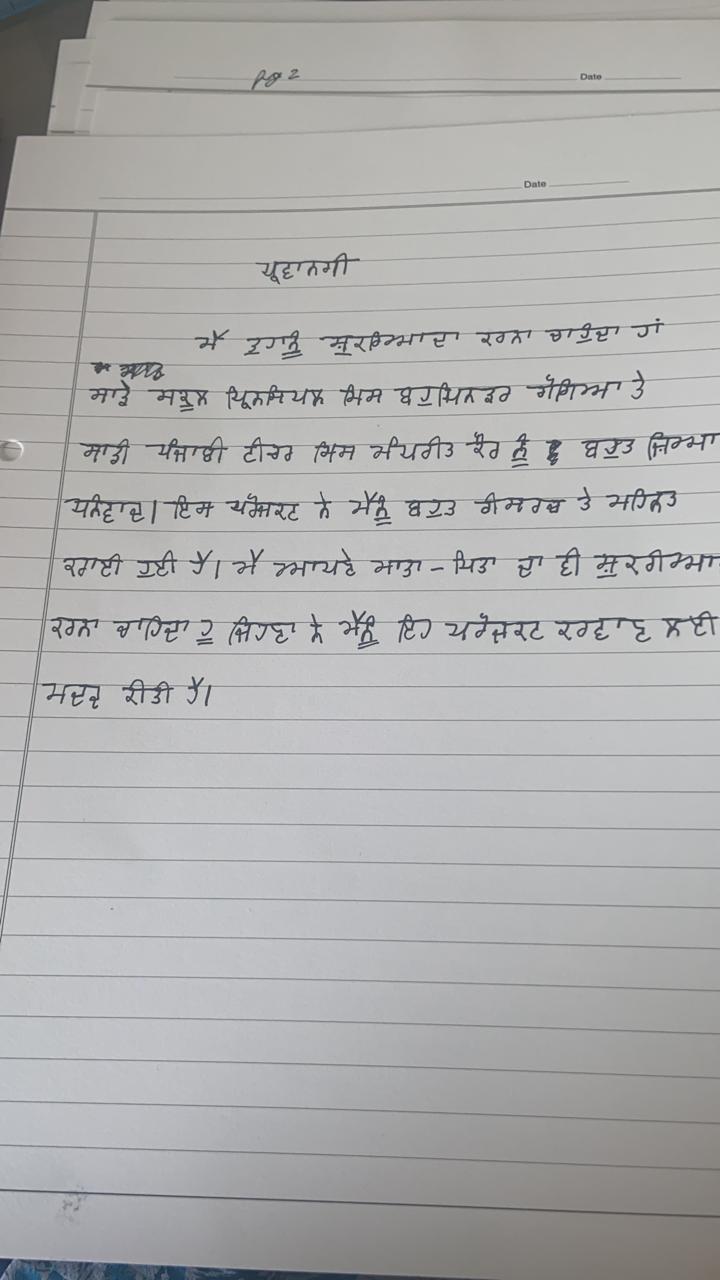 pg 2
Date
Date
ਪ੍ਰਵਾਨਗੀ
ਮੈਂ ਤੁਹਾਨੂੰ ਸ਼ੁਕਰਿਆਦਾ ਕਰਨਾ ਚਾਹੁੰਦਾ ਹਾਂ
ਸਾਡੇ ਸਕੂਲ ਪ੍ਰਿਨਸਿਪਲ ਮਿਸ ਤੇ
ਸਾਡੀ ਪੰਜਾਬੀ ਟੀਚਰ ਮਿਸ ਮੰਪਰੀਤ ਕੌਰ ਨੂੰ ਬਹੁਤ ਜ਼ਿਆ
ਧਨੰਵਾਦ। ਇਸ ਪਰੋਜਕਟ ਨੇ ਮੈਨੂੰ ਬਹੁਤ ਰੀਸਰਚ ਤੇ ਮਹਿਨਤ
ਕਰਾਈ ਹੁਈ ਹੈ। ਮੈਂ ਆਪਣੇ ਮਾਤਾ - ਪਿਤਾ ਦਾ ਵੀ ਸ਼ੁਕਰੀਆ
ਕਰਨਾ ਚਾਹਿਦਾ ਹੂ ਜਿਹਣਾ ਨੇ ਮੈਨੂੰ ਇਹ ਪਰੋਜਕਟ ਕਰਵਾਣ ਲਈ
ਮਦਦ ਕੀਤੀ ਹੈ।